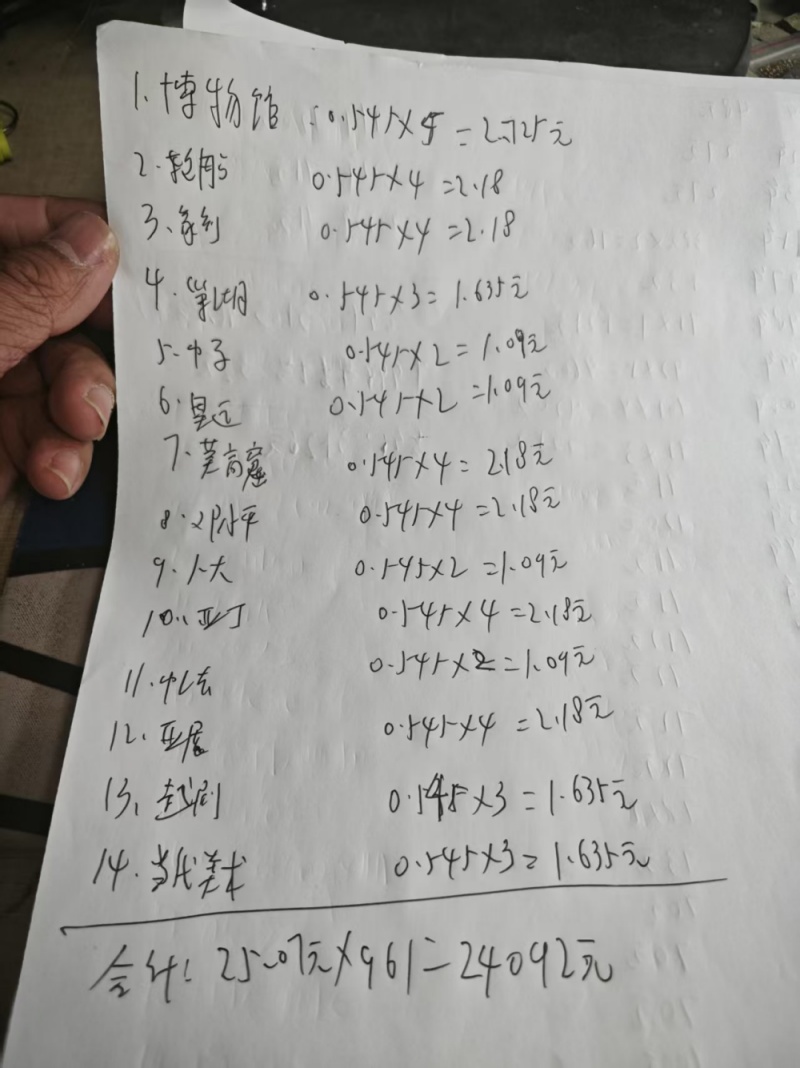 1. 博物馆 0.545×5=2.725元
2. 轮船 0.545×4=2.18
3. 0.545×4=2.18
4. 0.545×3=1.635元
5. 中子 0.545×2=1.09元
6. 0.545×2=1.09元
7. 莫高窟 0.545×4=2.18元
8. 邓小平 0.545×4=2.18元
9. 人大 0.545×2=1.09元
10. 亚丁 0.545×4=2.18元
11. 中法 0.545×2=1.09元
12. 亚展 0.545×4=2.18元
13. 越剧 0.545×3=1.635元
14. 当代美术 0.545×3=1.635元
合计: 25.07元×961=24092元